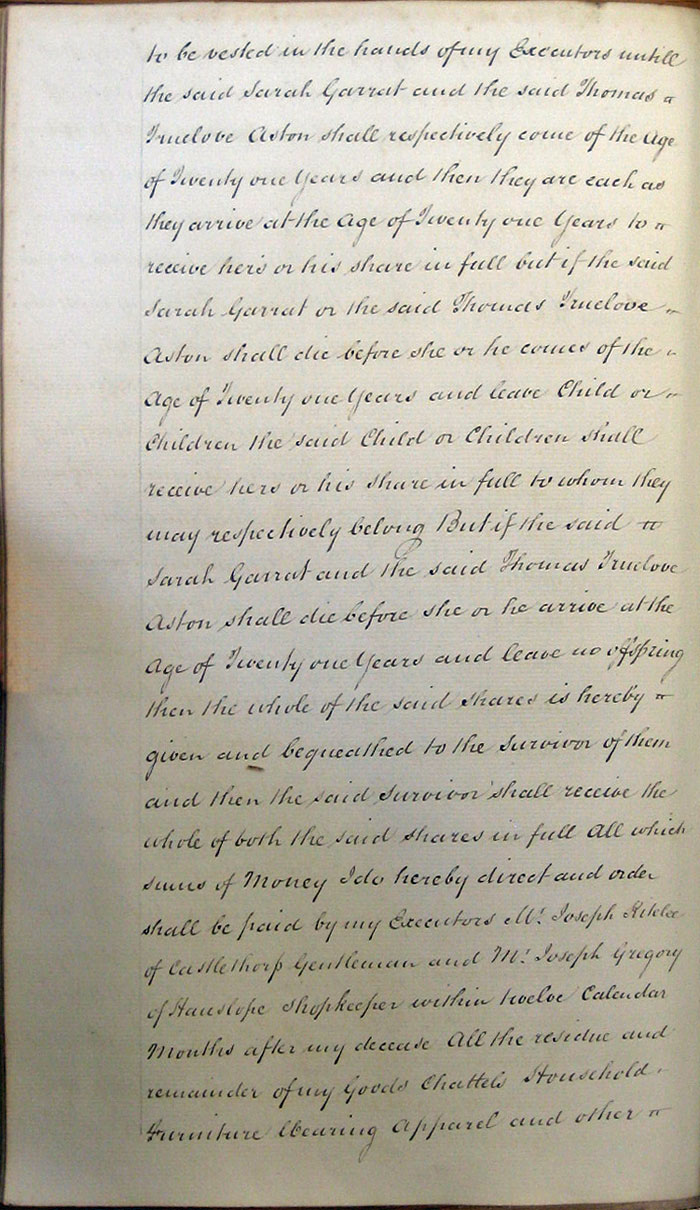 to be vested in the hands of my Executors untill
the said Sarah Garrat and the said Thomas
Truelove Aston shall respectively come of the Age
of Twenty one Years and then they are each as
they arrive at the Age of Twenty one Years to
receive hers or his share in full but if the said
Sarah Garrat or the said Thomas Truelove
Aston shall die before she or he comes of the
Age of Twenty one Years and leave Child or
Children the said Child or Children shall
receive hers or his share in full to whom they
may respectively belong But if the said
Sarah Garrat and the said Thomas Truelove
Aston shall die before she or he arrive at the
Age of Twenty one Years and leave no offspring
then the whole of the said shares is hereby
given and bequeathed to the Survivor of them
and then the said Survivor shall receive the
whole of both the said shares in full All which
sums of Money I do hereby direct and order
shall be paid by my Executors Mr. Joseph
of Castlethorp Gentleman and Mr. Joseph Gregory
of Hanslope Shopkeeper within twelve Calendar
Months after my decease All the residue and
remainder of my Goods Chattels Household
Furniture Wearing Apparel and other